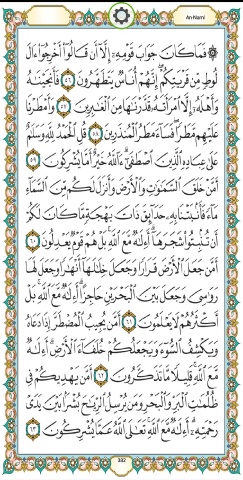 An-Naml
۞ فَمَا كَانَ جَوَابَ قَوْمِهِۦٓ إِلَّآ أَن قَالُوٓا۟ أَخْرِجُوٓا۟ ءَالَ
لُوطٍ مِّن قَرْيَتِكُمْ ۖ إِنَّهُمْ أُنَاسٌ يَتَطَهَّرُونَ ٥٦ فَأَنجَيْنَـٰهُ
وَأَهْلَهُۥٓ إِلَّا ٱمْرَأَتَهُۥ قَدَّرْنَـٰهَا مِنَ ٱلْغَـٰبِرِينَ ٥٧ وَأَمْطَرْنَا
عَلَيْهِم مَّطَرًا ۖ فَسَآءَ مَطَرُ ٱلْمُنذَرِينَ ٥٨ قُلِ ٱلْحَمْدُ لِلَّهِ وَسَلَـٰمٌ
عَلَىٰ عِبَادِهِ ٱلَّذِينَ ٱصْطَفَىٰٓ ۗ ءَآللَّهُ خَيْرٌ أَمَّا يُشْرِكُونَ ٥٩
أَمَّنْ خَلَقَ ٱلسَّمَـٰوَٰتِ وَٱلْأَرْضَ وَأَنزَلَ لَكُم مِّنَ ٱلسَّمَآءِ
مَآءً فَأَنۢبَتْنَا بِهِۦ حَدَآئِقَ ذَاتَ بَهْجَةٍ مَّا كَانَ لَكُمْ
أَن تُنۢبِتُوا۟ شَجَرَهَآ ۗ أَءِلَـٰهٌ مَّعَ ٱللَّهِ ۚ بَلْ هُمْ قَوْمٌ يَعْدِلُونَ ٦٠
أَمَّن جَعَلَ ٱلْأَرْضَ قَرَارًا وَجَعَلَ خِلَـٰلَهَآ أَنْهَـٰرًا وَجَعَلَ لَهَا
رَوَٰسِىَ وَجَعَلَ بَيْنَ ٱلْبَحْرَيْنِ حَاجِزًا ۗ أَءِلَـٰهٌ مَّعَ ٱللَّهِ ۚ بَلْ
أَكْثَرُهُمْ لَا يَعْلَمُونَ ٦١ أَمَّن يُجِيبُ ٱلْمُضْطَرَّ إِذَا دَعَاهُ
وَيَكْشِفُ ٱلسُّوٓءَ وَيَجْعَلُكُمْ خُلَفَآءَ ٱلْأَرْضِ ۗ أَءِلَـٰهٌ
مَّعَ ٱللَّهِ ۚ قَلِيلًا مَّا تَذَكَّرُونَ ٦٢ أَمَّن يَهْدِيكُمْ فِى
ظُلُمَـٰتِ ٱلْبَرِّ وَٱلْبَحْرِ وَمَن يُرْسِلُ ٱلرِّيَـٰحَ بُشْرًۢا بَيْنَ يَدَىْ
رَحْمَتِهِۦٓ ۗ أَءِلَـٰهٌ مَّعَ ٱللَّهِ ۚ تَعَـٰلَى ٱللَّهُ عَمَّا يُشْرِكُونَ ٦٣
382